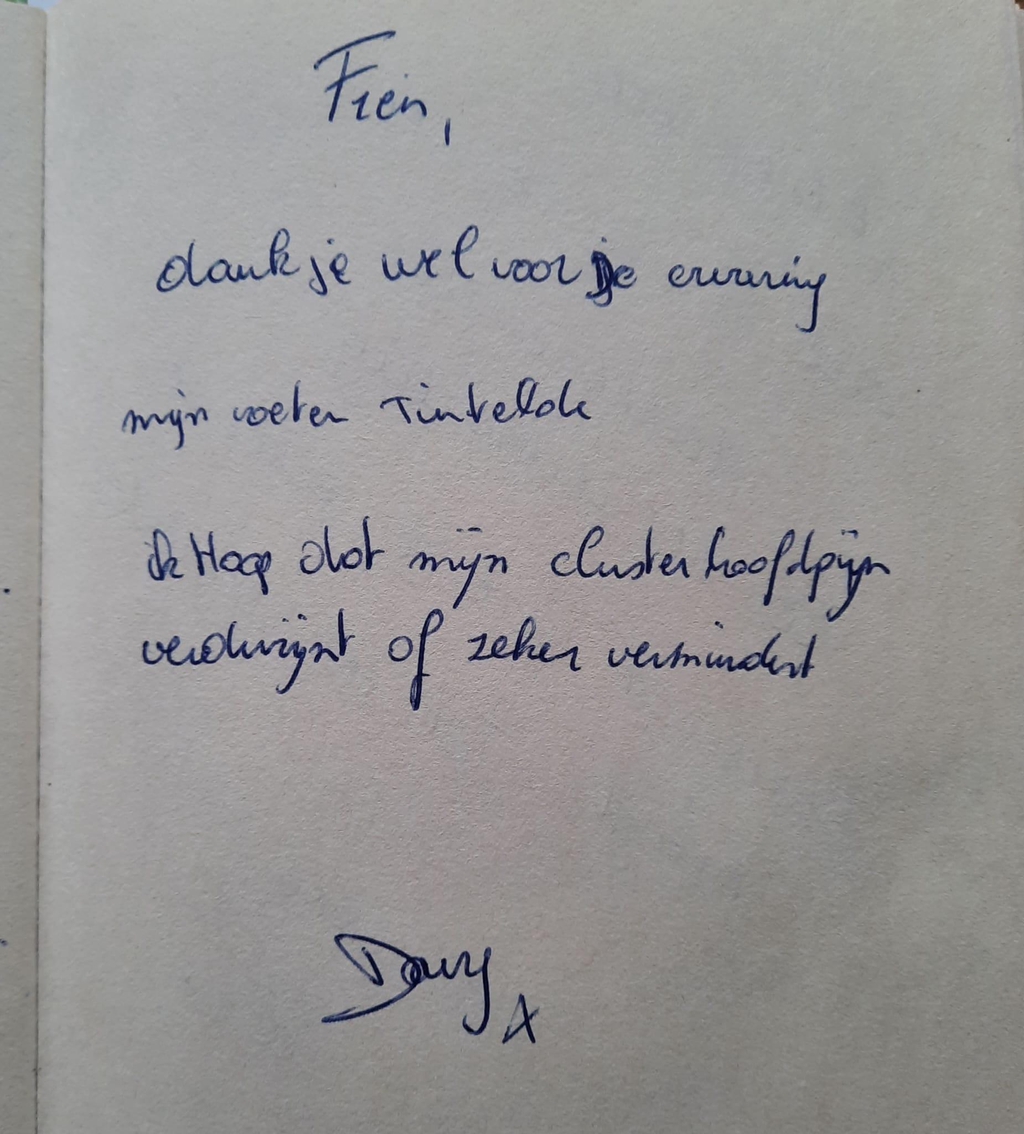 Fien,
dank je wel voor je ervaring
mijn voeten Tintelde
ik Hoop dat mijn clusterhoofdpijn
verdwijnt of zeker vermindert
Davy x